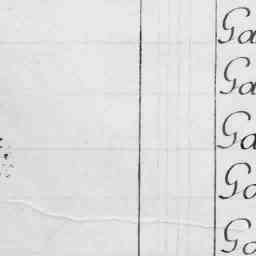 Ga
Ga
Ga
Go
Go